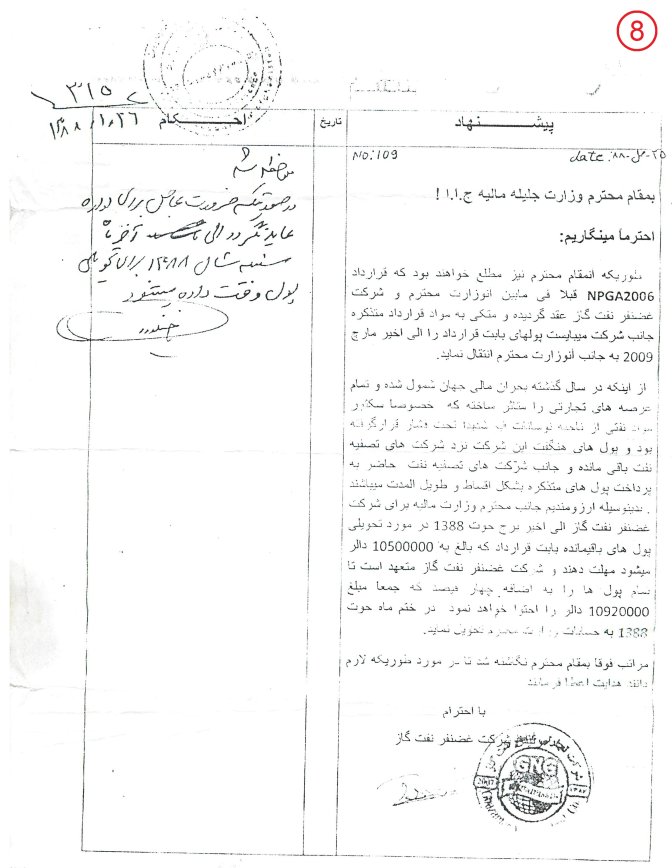 8
۳۱۵
پیشنهاد
تاریخ
احکام
۱۳۸۸/۱/۲۶
NO:109
date:
بمقام محترم وزارت جلیله مالیه ج.ا.ا !
احتراماً مینگاریم:
طوریکه انمقام محترم نیز مطلع خواهند بود که قرارداد
NPGA2006 قبلا فی مابین انوزارت محترم و شرکت
غضنفر نفت گاز عقد گردیده و متکی به مواد قرارداد متذکره
جانب شرکت میبایست پولهای بابت قرارداد را الی اخیر مارچ
2009 به جانب آنوزارت محترم انتقال نماید.
از اینکه در سال گذشته بحران مالی جهان شمول شده و تمام
عرصه های تجارتی را متاثر ساخته که خصوصا سکتور
مواد نفتی از ناحیه نوسانات شدیدا تحت فشار قرارگرفته
بود و پول های هنگفت این شرکت نزد شرکت های تصفیه
نفت باقی مانده و جانب شرکت های تصفیه نفت حاضر به
پرداخت پول های متذکره بشکل اقساط و طویل المدت میباشند
. بدینوسیله ارزومندیم جانب محترم وزارت مالیه برای شرکت
غضنفر نفت گاز الی اخیر برج حوت 1388 در مورد تحویلی
پول های باقیمانده بابت قرارداد که بالغ به 10500000 دالر
میشود مهلت دهند و شرکت غضنفر نفت گاز متعهد است تا
تمام پول ها را به اضافه چهار فیصد که جمعا مبلغ
10920000 دالر را احتوا خواهد نمود در ختم ماه حوت
1388 به حسابات وزارت محترم تحویل نماید.
مراتب فوقا بمقام محترم نگاشته شد تا در مورد طوریکه لازم
دانند هدایت اعطا فرمایند
با احترام
شرکت غضنفر نفت گاز
GNG
ملاحظه شد
در صورتیکه ضرورت عاجل برای دوره
عاید نگردد الی آخر ماه
سنبله سال ۱۳۸۸ برای تحویلی
پول وقت داده میشود